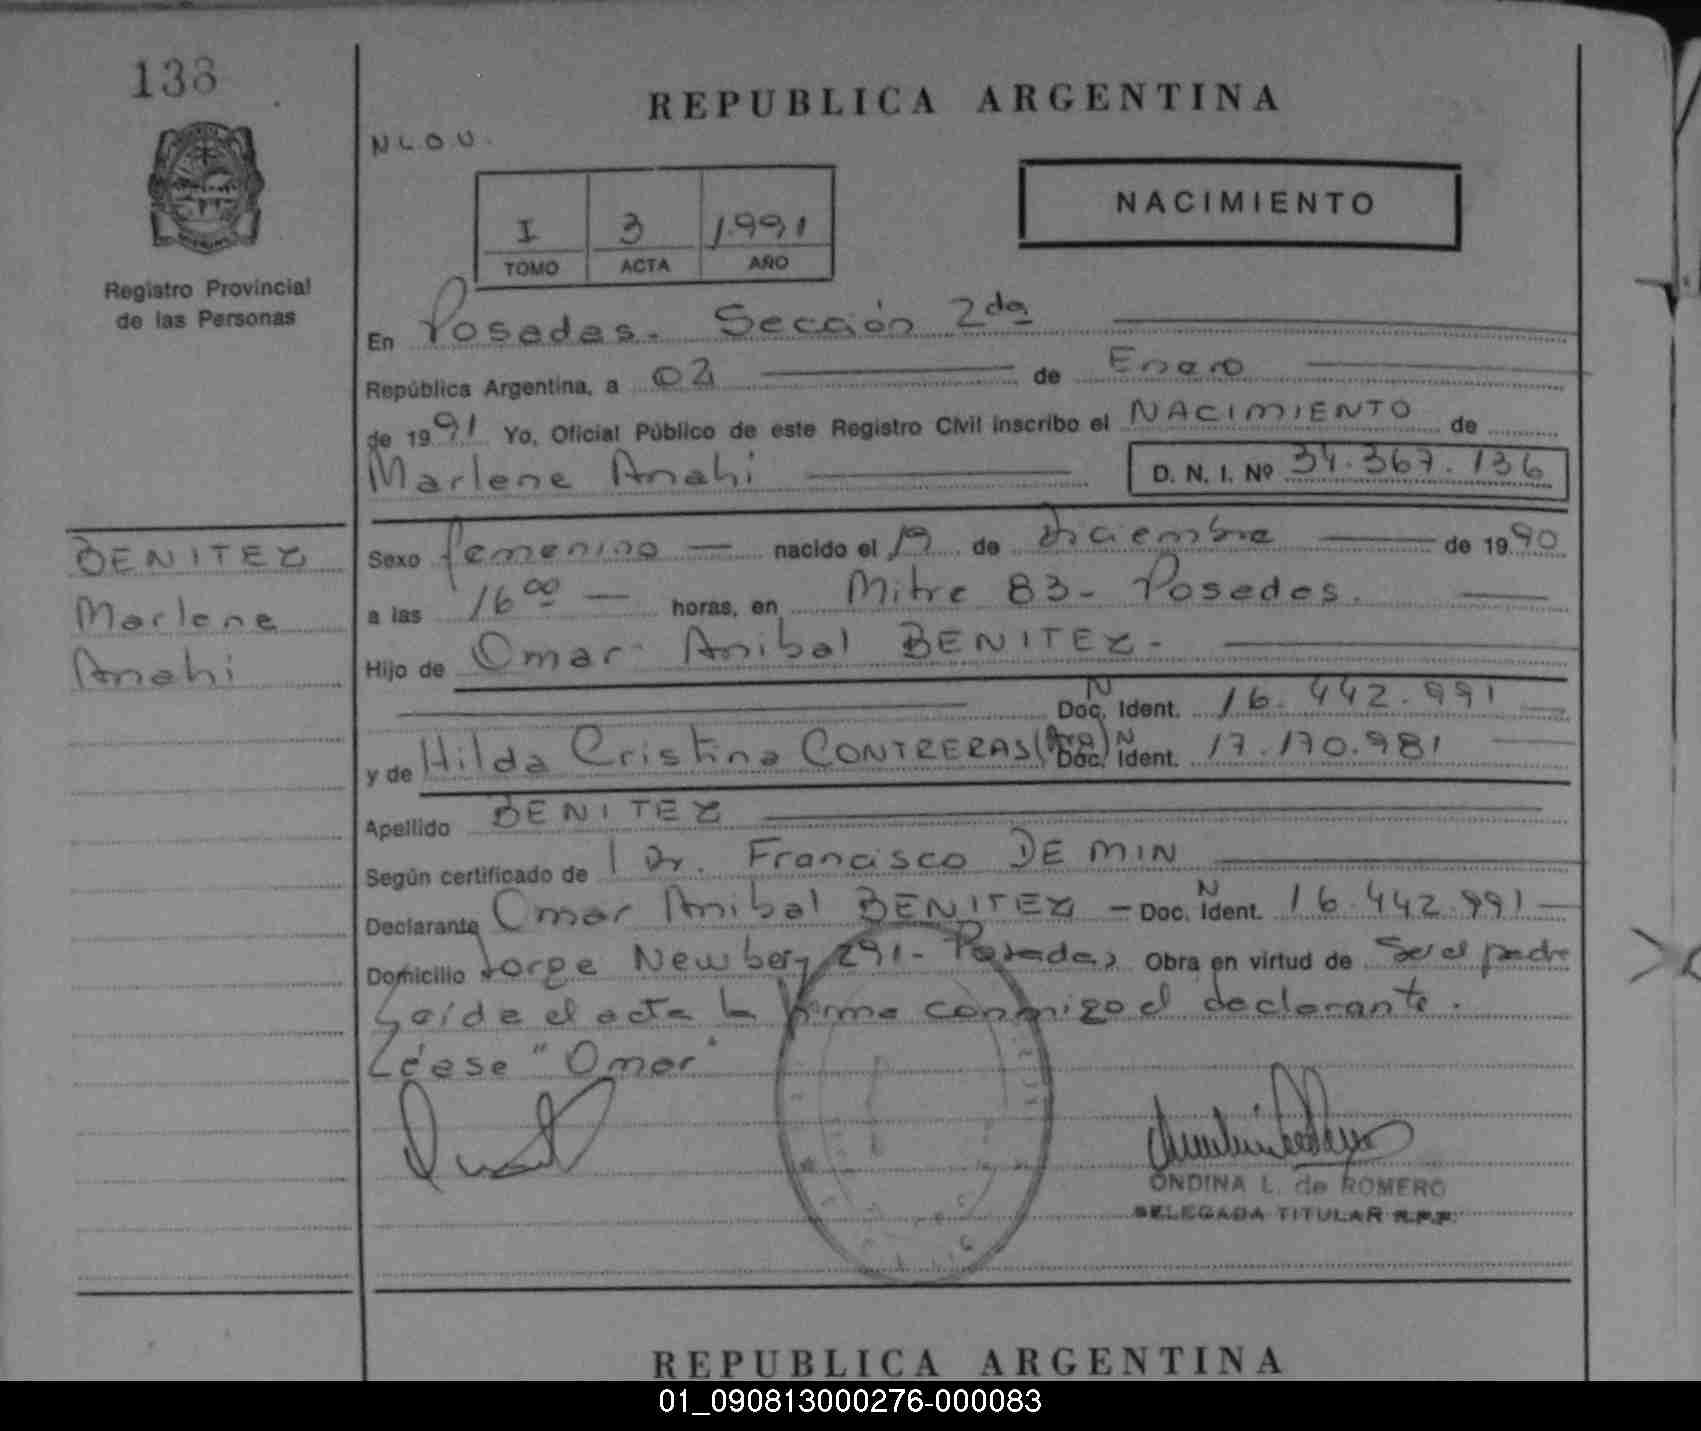 138
REPUBLICA ARGENTINA
N L O U.
I 3 1991
TOMO ACTA AÑO
NACIMIENTO
Registro Provincial
de las Personas
En Posadas. Sección 2da
República Argentina, a 02 de Enero
de 1991 Yo, Oficial Público de este Registro Civil inscribo el NACIMIENTO de
Marlene Anahi D. N. I. Nº 34.367.136
BENITEZ
Marlene
Anahi
Sexo femenino — nacido el 19 de Diciembre de 1990
a las 16 00 — horas, en Mitre 83 - Posadas.
Hijo de Omar Anibal BENITEZ -
N
Doc. Ident. 16.442.991
y de Hilda Cristina CONTRERAS (Arg) N Doc. Ident. 17.170.981
Apellido BENITEZ
Según certificado de l Dr. Francisco DE MIN
Declarante Omar Anibal BENITEZ — Doc. N Ident. 16.442.991
Domicilio Jorge Newbery 291 - Posadas Obra en virtud de Ser el padre
Leída el acta la firma conmigo el declarante.
Léase "Omar"
ONDINA L. de ROMERO
DELEGADA TITULAR R.P.P.
REPUBLICA ARGENTINA
01_090813000276-000083